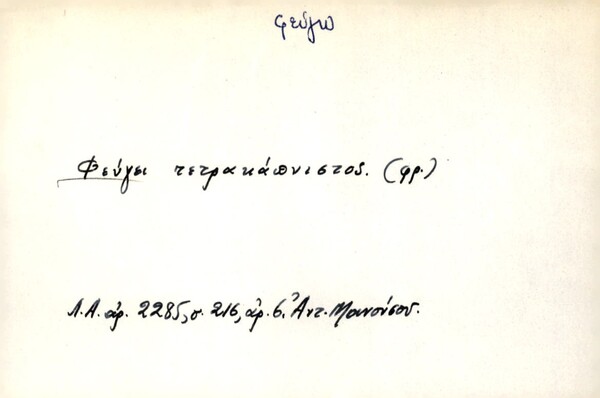 φεύγω
Φεύγει τετρακάπνιστος. (φρ.)
Λ.Α. ἀρ. 2285, σ. 216, ἀρ. 6. Ἀντ. Μανούσου.